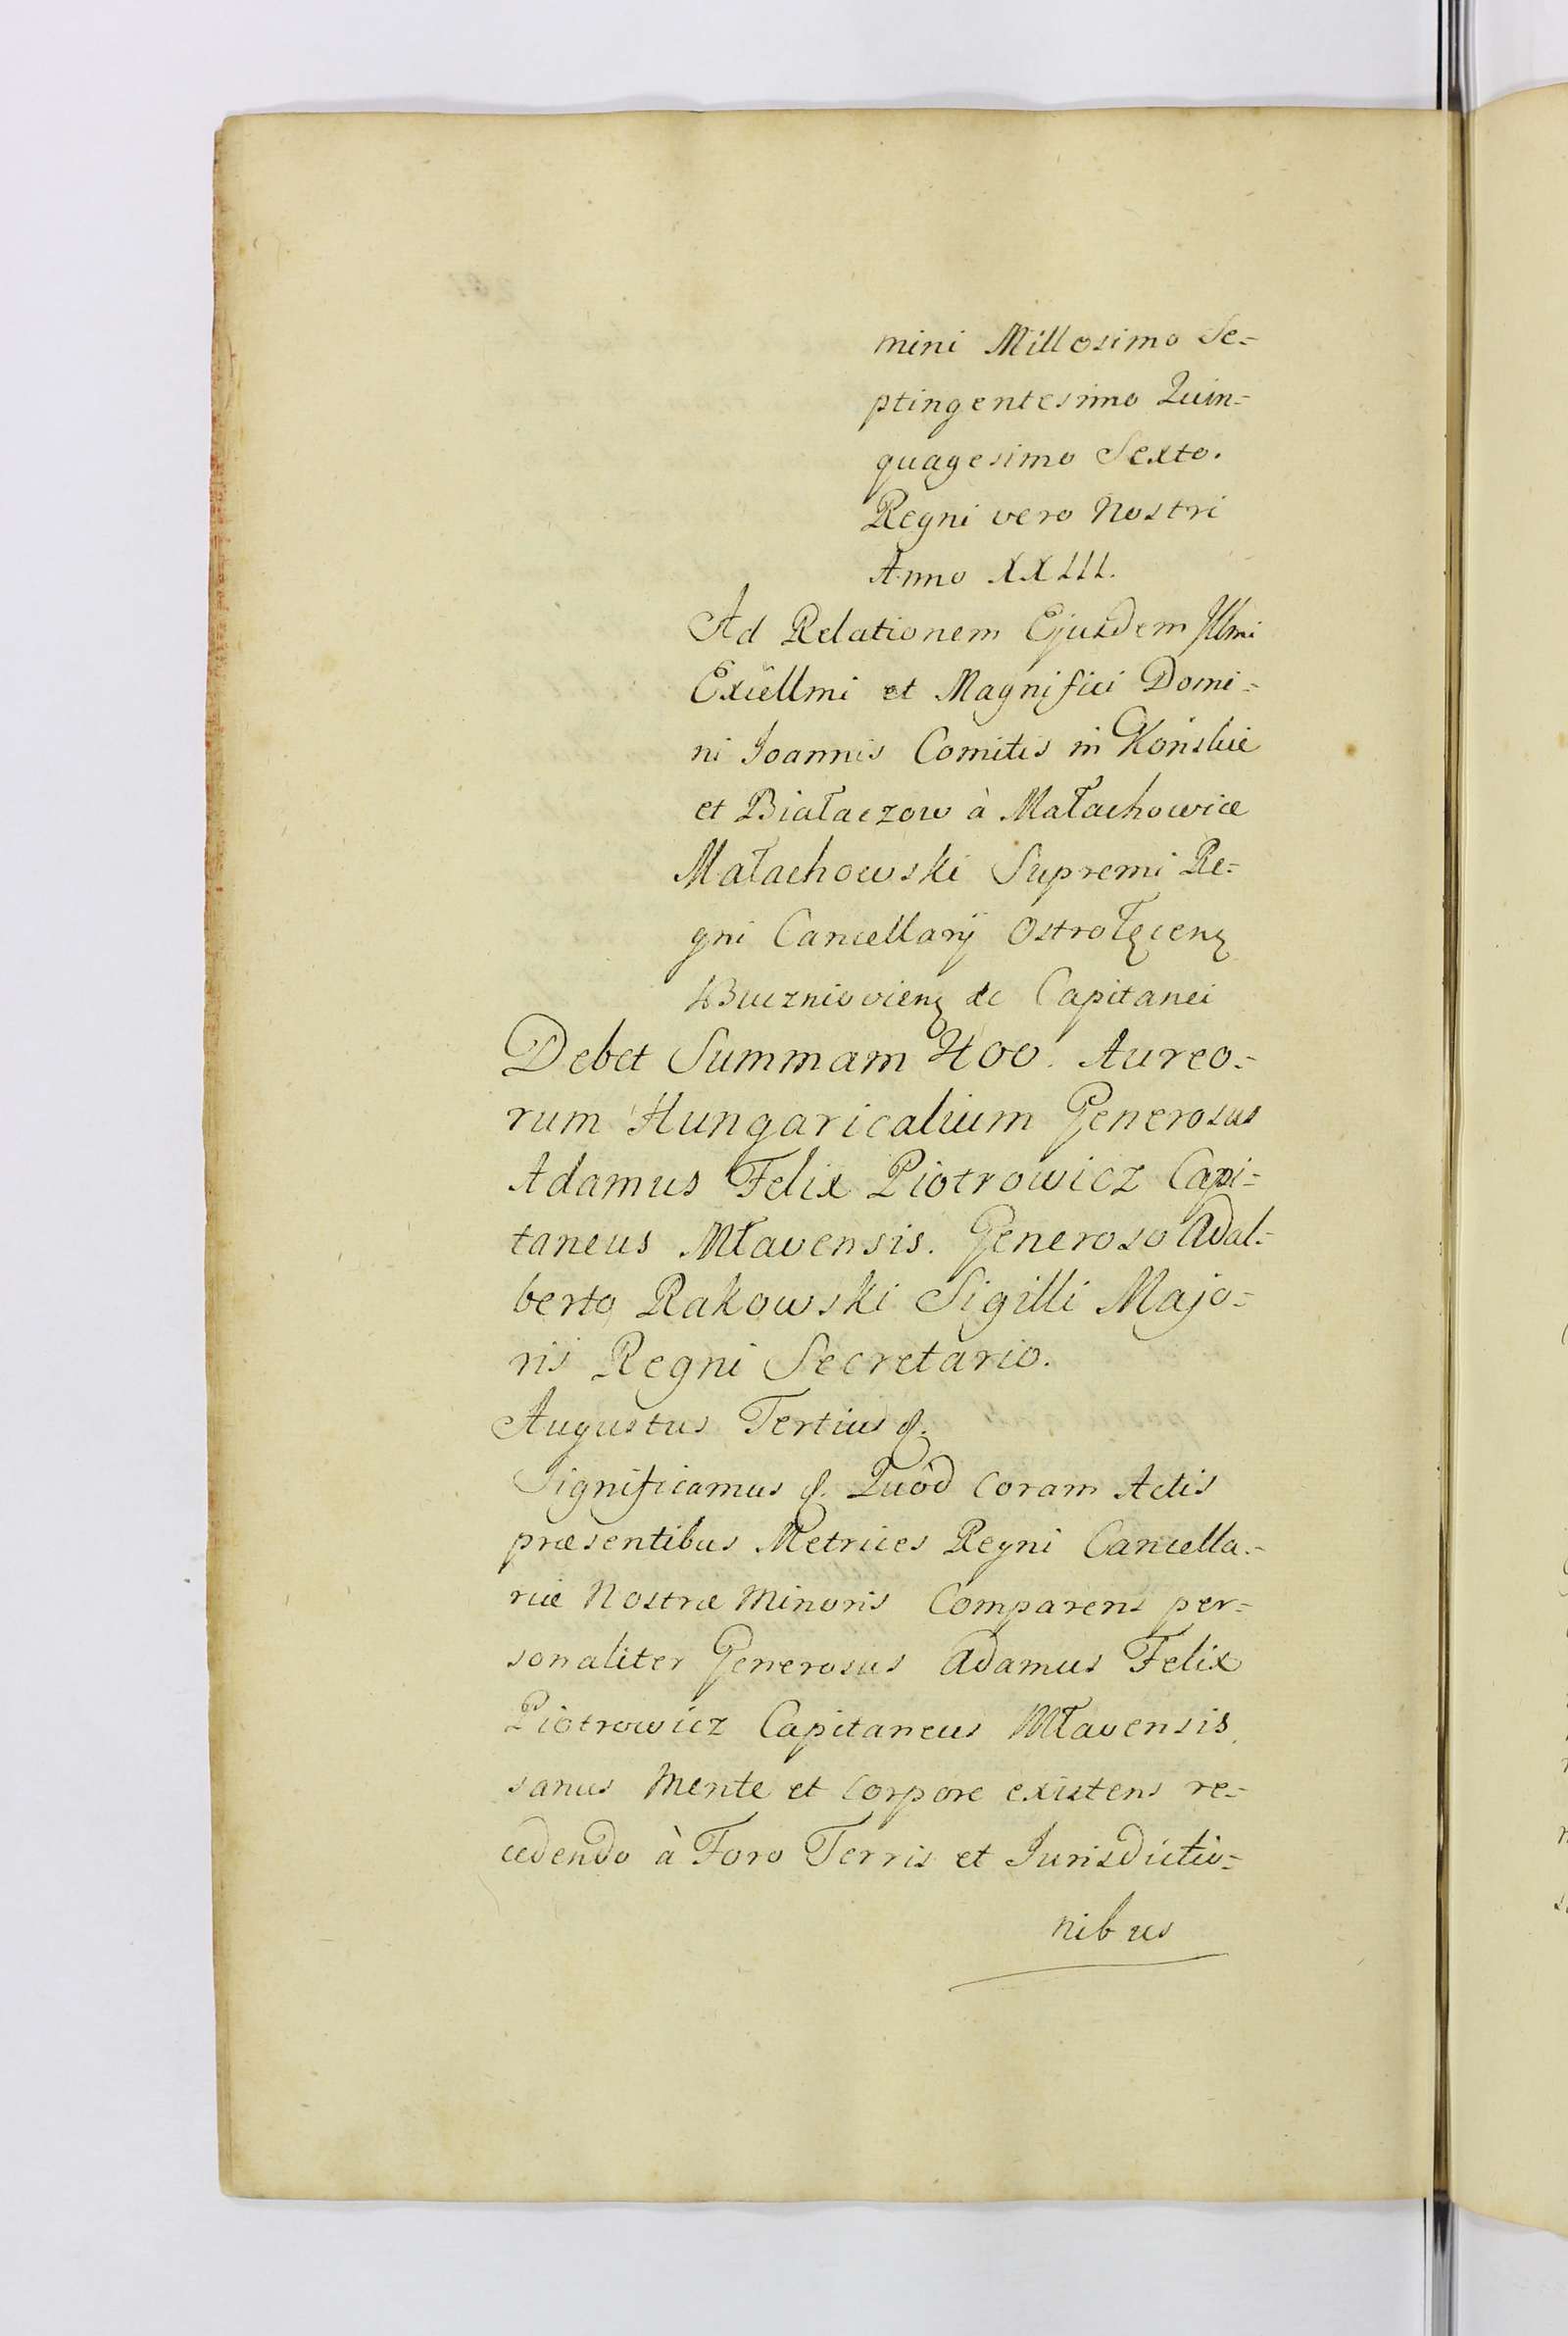 mini Millesimo Se=
ptingentesimo Quin=
quagesimo Sexto.
Regni vero Nostri
Anno XXIII.
Ad Relationem Ejusdem Illmi
Excellmi et Magnifici Domi=
ni Joannis Comitis in Końskie
et Białaczow à Małachowice
Małachowski Supremi Re=
gni Cancellarij
Capitanei
Debet Summam 400. Aureo=
rum Hungaricalium Generosus
Adamus Felix Piotrowicz Capi=
taneus Młavensis. Generoso Adal=
berto Rakowski Sigilli Majo=
ris Regni Secretario.
Augustus Tertius &.
Significamus &. Quôd coram Actis
præsentibus Metrices Regni Cancella=
riæ Nostræ Minoris Comparens per=
sonaliter Generosus Adamus Felix
Piotrowicz Capitaneus Młavensis
sanus Mente et Corpore existens re=
cedendo à Foro Terris et Jurisdictio=
nibus